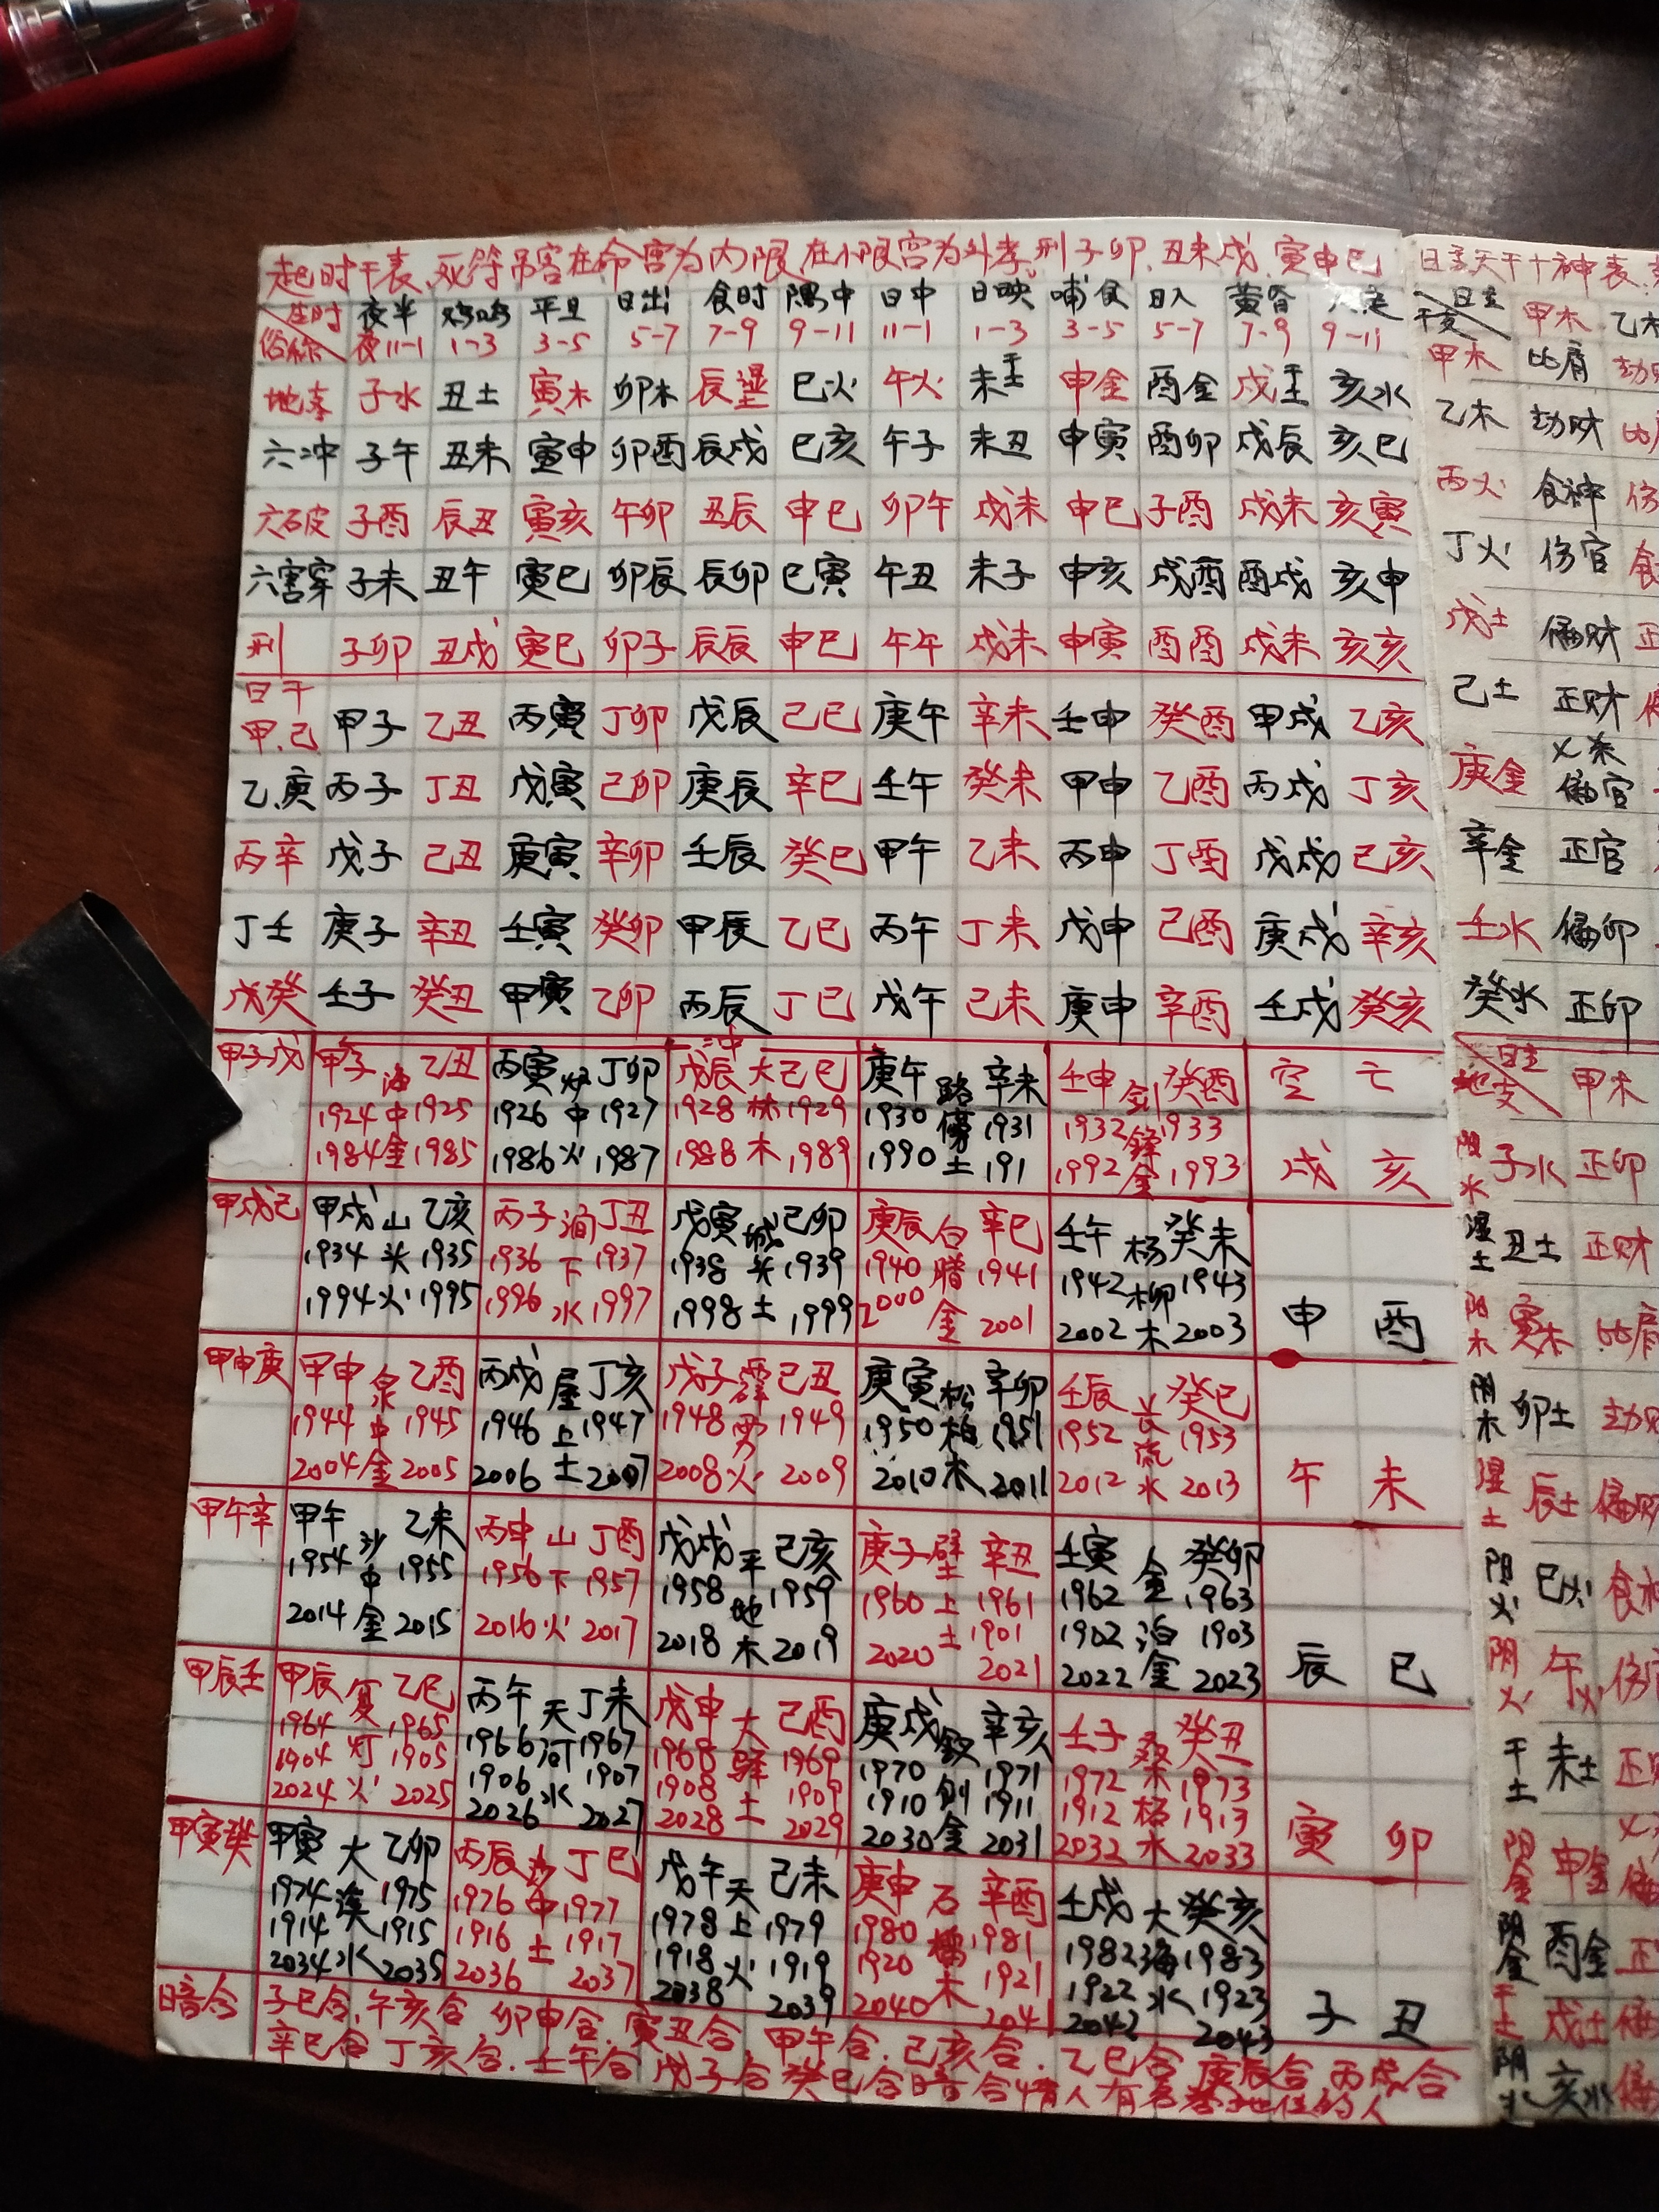 起时干表、死符吊客在命宫为内限,在小限宫为外孝,刑子卯、丑未戌、寅申巳
生时 夜半 鸡鸣 平旦 日出 食时 隅中 日中 日映 哺食 日入 黄昏 人定
俗称 夜11-1 1-3 3-5 5-7 7-9 9-11 11-1 1-3 3-5 5-7 7-9 9-11
地支 子水 丑土 寅木 卯木 辰湿土 巳火 午火 未干土 申金 酉金 戌干土 亥水
六冲 子午 丑未 寅申 卯酉 辰戌 巳亥 午子 未丑 申寅 酉卯 戌辰 亥巳
六破 子酉 辰丑 寅亥 午卯 丑辰 申巳 卯午 戌未 申巳 子酉 戌未 亥寅
六害穿 子未 丑午 寅巳 卯辰 辰卯 巳寅 午丑 未子 申亥 戌酉 酉戌 亥申
刑 子卯 丑戌 寅巳 卯子 辰辰 申巳 午午 戌未 申寅 酉酉 戌未 亥亥
日干
甲.己 甲子 乙丑 丙寅 丁卯 戊辰 己巳 庚午 辛未 壬申 癸酉 甲戌 乙亥
乙.庚 丙子 丁丑 戊寅 己卯 庚辰 辛巳 壬午 癸未 甲申 乙酉 丙戌 丁亥
丙辛 戊子 己丑 庚寅 辛卯 壬辰 癸巳 甲午 乙未 丙申 丁酉 戊戌 己亥
丁壬 庚子 辛丑 壬寅 癸卯 甲辰 乙巳 丙午 丁未 戊申 己酉 庚戌 辛亥
戊癸 壬子 癸丑 甲寅 乙卯 丙辰 丁巳 戊午 己未 庚申 辛酉 壬戌 癸亥
冲
甲子戊 甲子 海 乙丑 丙寅 炉 丁卯 戊辰 大 己巳 庚午 路 辛未 壬申 剑 癸酉 空亡
1924 中 1925 1926 中 1927 1928 林 1929 1930 傍 1931 1932 锋 1933
1984 金 1985 1986 火 1987 1988 木 1989 1990 土 191 1992 金 1993 戌 亥
甲戌己 甲戌 山 乙亥 丙子 涧 丁丑 戊寅 城 己卯 庚辰 白 辛巳 壬午 杨 癸未
1934 头 1935 1936 下 1937 1938 头 1939 1940 腊 1941 1942 柳 1943
1994 火 1995 1996 水 1997 1998 土 1999 2000 金 2001 2002 木 2003 申 酉
甲申庚 甲申 泉 乙酉 丙戌 屋 丁亥 戊子 霹 己丑 庚寅 松 辛卯 壬辰 长 癸巳
1944 中 1945 1946 上 1947 1948 雳 1949 1950 柏 1951 1952 流 1953
2004 金 2005 2006 土 2007 2008 火 2009 2010 木 2011 2012 水 2013 午 未
甲午辛 甲午 沙 乙未 丙申 山 丁酉 戊戌 平 己亥 庚子 壁 辛丑 壬寅 金 癸卯
1954 中 1955 1956 下 1957 1958 地 1959 1960 上 1961 1962 泊 1963
1901 1902 1903
2014 金 2015 2016 火 2017 2018 木 2019 2020 土 2021 2022 金 2023 辰 巳
甲辰壬 甲辰 复 乙巳 丙午 天 丁未 戊申 大 己酉 庚戌 钗 辛亥 壬子 桑 癸丑
1964 灯 1965 1966 河 1967 1968 驿 1969 1970 钏 1971 1972 柘 1973
1904 1905 1906 1907 1908 1909 1910 1911 1912 1913
2024 火 2025 2026 水 2027 2028 土 2029 2030 金 2031 2032 水 2033 寅 卯
甲寅癸 甲寅 大 乙卯 丙辰 沙 丁巳 戊午 天 己未 庚申 石 辛酉 壬戌 大 癸亥
1974 溪 1975 1976 中 1977 1978 上 1979 1980 榴 1981 1982 海 1983
1914 1915 1916 土 1917 1918 火 1919 1920 木 1921 1922 水 1923
2034 水 2035 2036 2037 2038 2039 2040 204 2042 2043 子 丑
暗合 子巳合.午亥合.卯申合.寅丑合.甲午合.己亥合.乙巳合.庚辰合.丙戌合
辛巳合 丁亥合.壬午合 戊子合 癸巳合暗合情人有名 地位的人
日主天干十神表
日主 干支 甲木 乙木
甲木 比肩 劫财
乙木 劫财 比肩
丙火 食神 伤
丁火 伤官 食
戊土 偏财 正
己土 正财 偏
庚金 七杀 偏官
辛金 正官
壬水 偏印
癸水 正印
日主 地支 甲木
阴水 子水 正印
湿土 丑土 正财
阳木 寅木 比肩
阴木 卯土 劫财
湿土 辰土 偏财
阳火 巳火 食神
阴火 午火 伤官
干土 未土 正财
阳金 申金 偏
阴金 酉金 正
干土 戌土 偏
阴水 亥水 偏